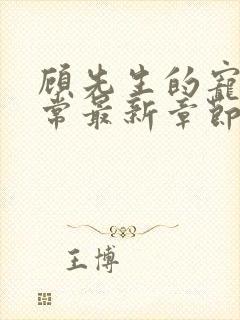 顾先生的宠
常最新章节
王博